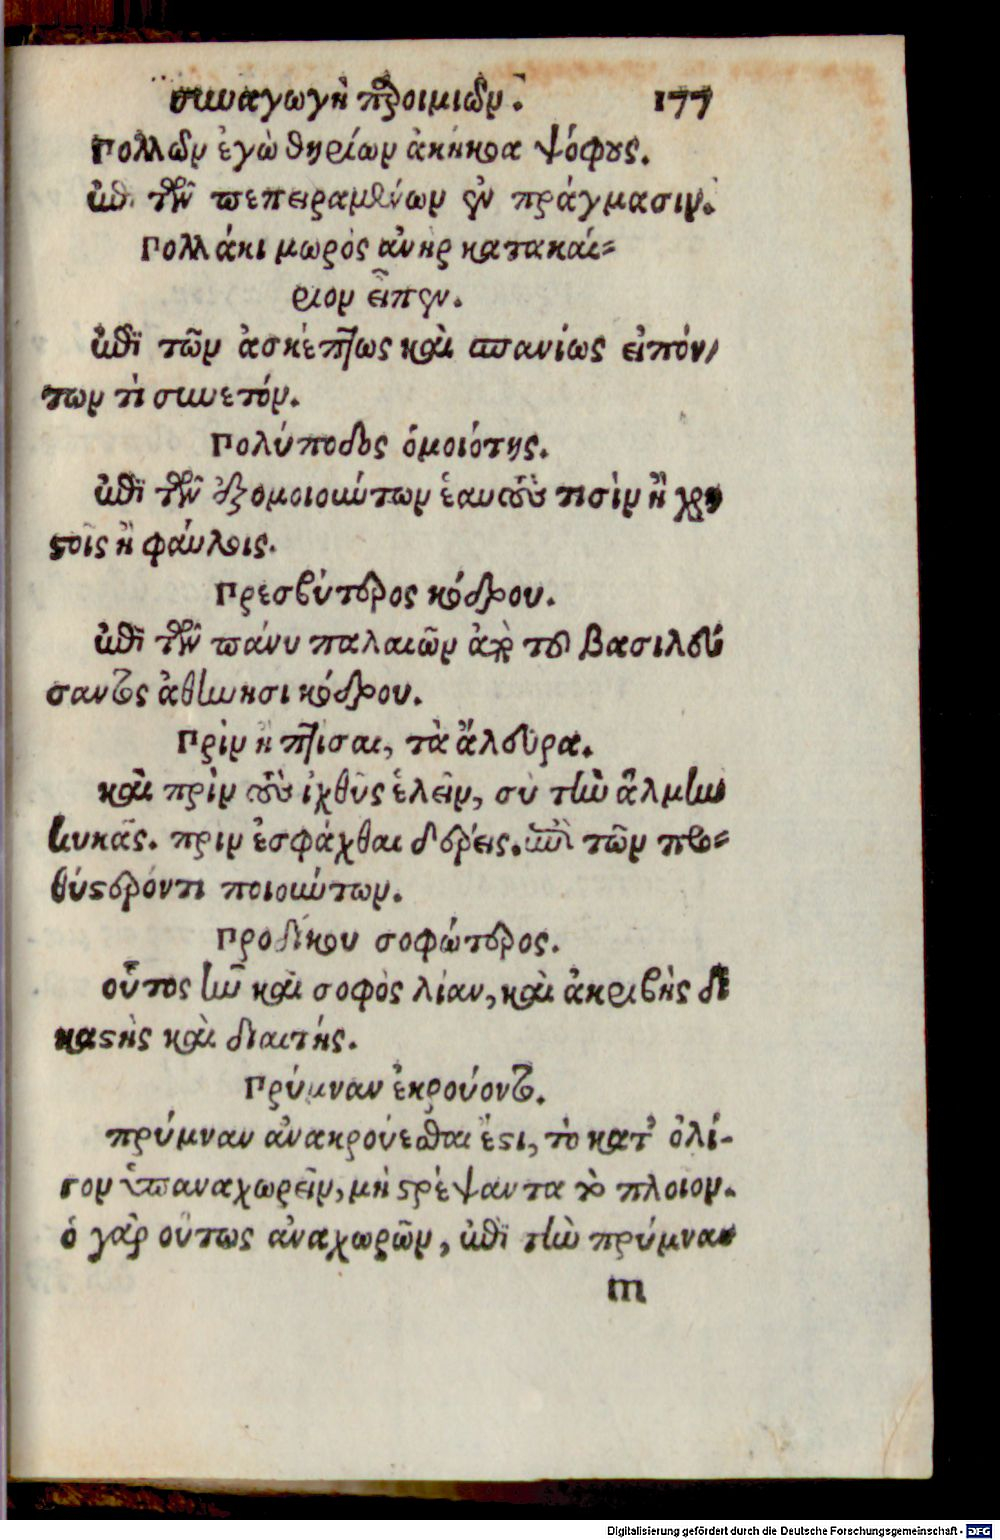 συναγωγὴ παροιμιῶν. 177
Πολλῶν ἐγὼ θηρίων ἀκήκοα ψόφους.
ἐπὶ τῶν πεπειραμένων ἐν πράγμασιν.
Πολλάκι μωρὸς ἀνὴρ κατακαί-
ριον εἶπεν.
ἐπὶ τῶν ἀσκέπτως καὶ σπανίως εἰπόν/
των τὶ συνετόν.
Πολύποδος ὁμοιότης.
ἐπὶ τῶν ἐξομοιούντων ἑαυτοὺς τισὶν ἢ χρη
στοῖς ἢ φαύλοις.
Πρεσβύτερος κόδρου.
ἐπὶ τῶν πάνυ παλαιῶν ἀπὸ τοῦ βασιλεύ
σαντος ἀθήνησι κόδρου.
Πρὶν ἢ πτίσαι, τὰ ἄλευρα.
καὶ πρὶν τοὺς ἰχθῦς ἑλεῖν, σὺ τὴν ἅλμην
κυκᾷς. πριν ἐσφάχθαι δέρεις. ἐπὶ τῶν πρω-
θύστερόν τι ποιούντων.
Προδίκου σοφώτερος.
οὗτος ἦν καὶ σοφὸς λίαν, καὶ ἀκριβὴς δι
καστὴς καὶ διαιτής.
Πρύμναν ἐκρούοντο.
πρύμναν ἀνακρούεσθαι ἔστι, τὸ κατ' ὀλί-
γον ὑπαναχωρεῖν, μὴ στρέψαντα τὸ πλοῖον.
ὁ γὰρ οὕτως ἀναχωρῶν, ἐπὶ τὴν πρύμναν
m
Digitalisierung gefördert durch die Deutsche Forschungsgemeinschaft - DFG